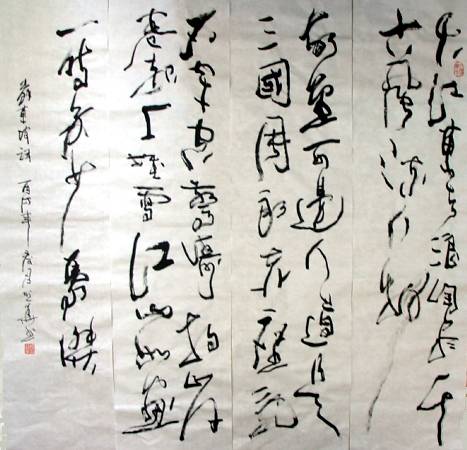 大江東去浪淘盡千
古風流人物
故壘西邊人道是
三國周郎赤壁亂
石穿空驚濤拍岸
捲起千堆雪江山如畫
一時多少豪傑
蘇東坡詞